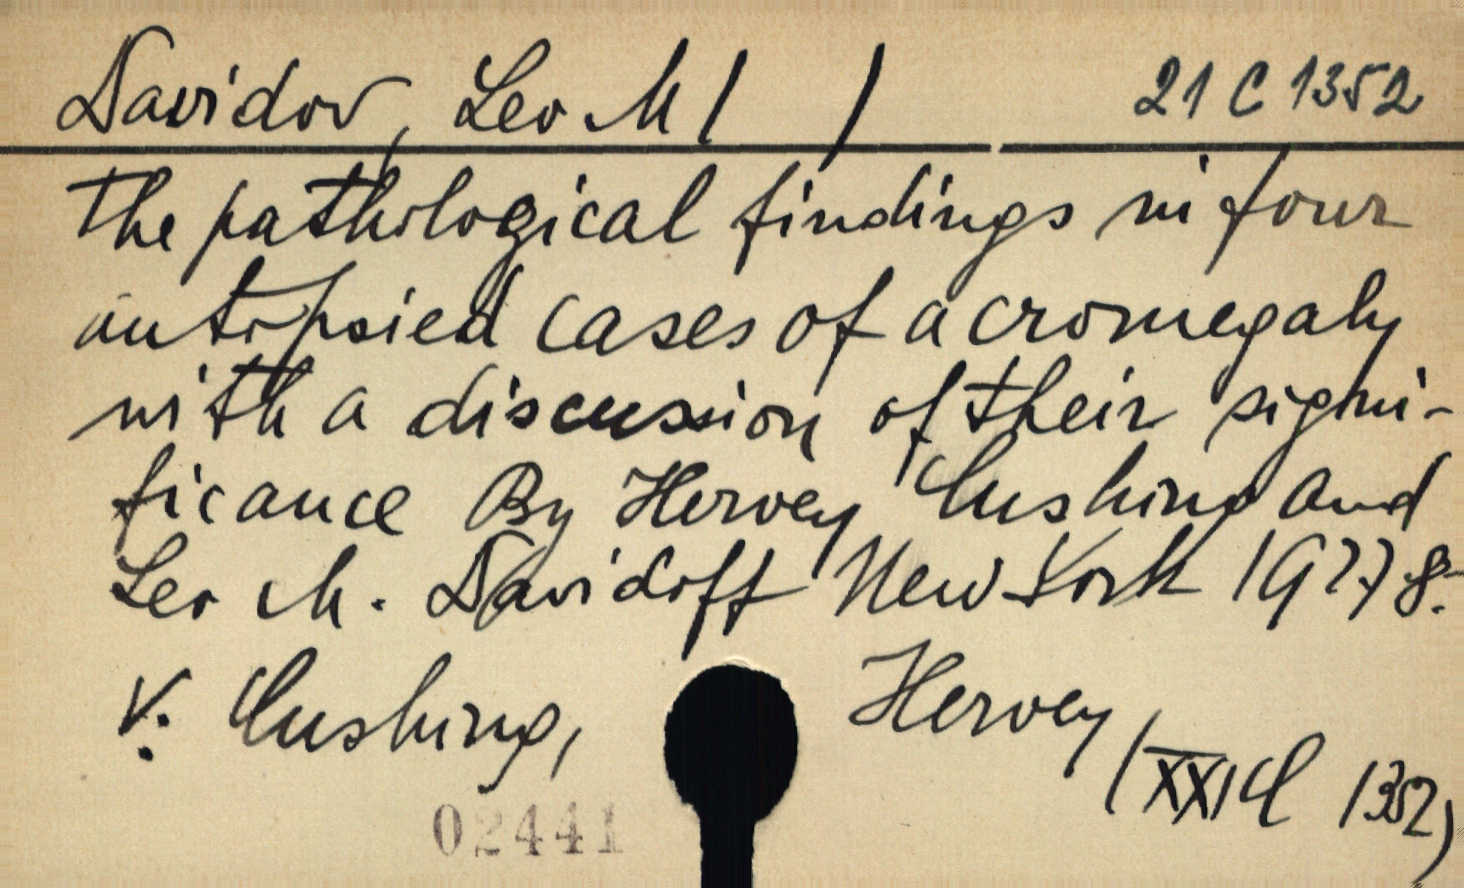 Davidov, Leo M / / 21 C 1352
The pathological findings in four
autopsied cases of acromegaly
with a discussion of their signi-
ficance By Hervey Cushing and
Leo M. Davidoff New York 1927 8.
V. Cushing, Hervey
(XXI C 1352)
02441